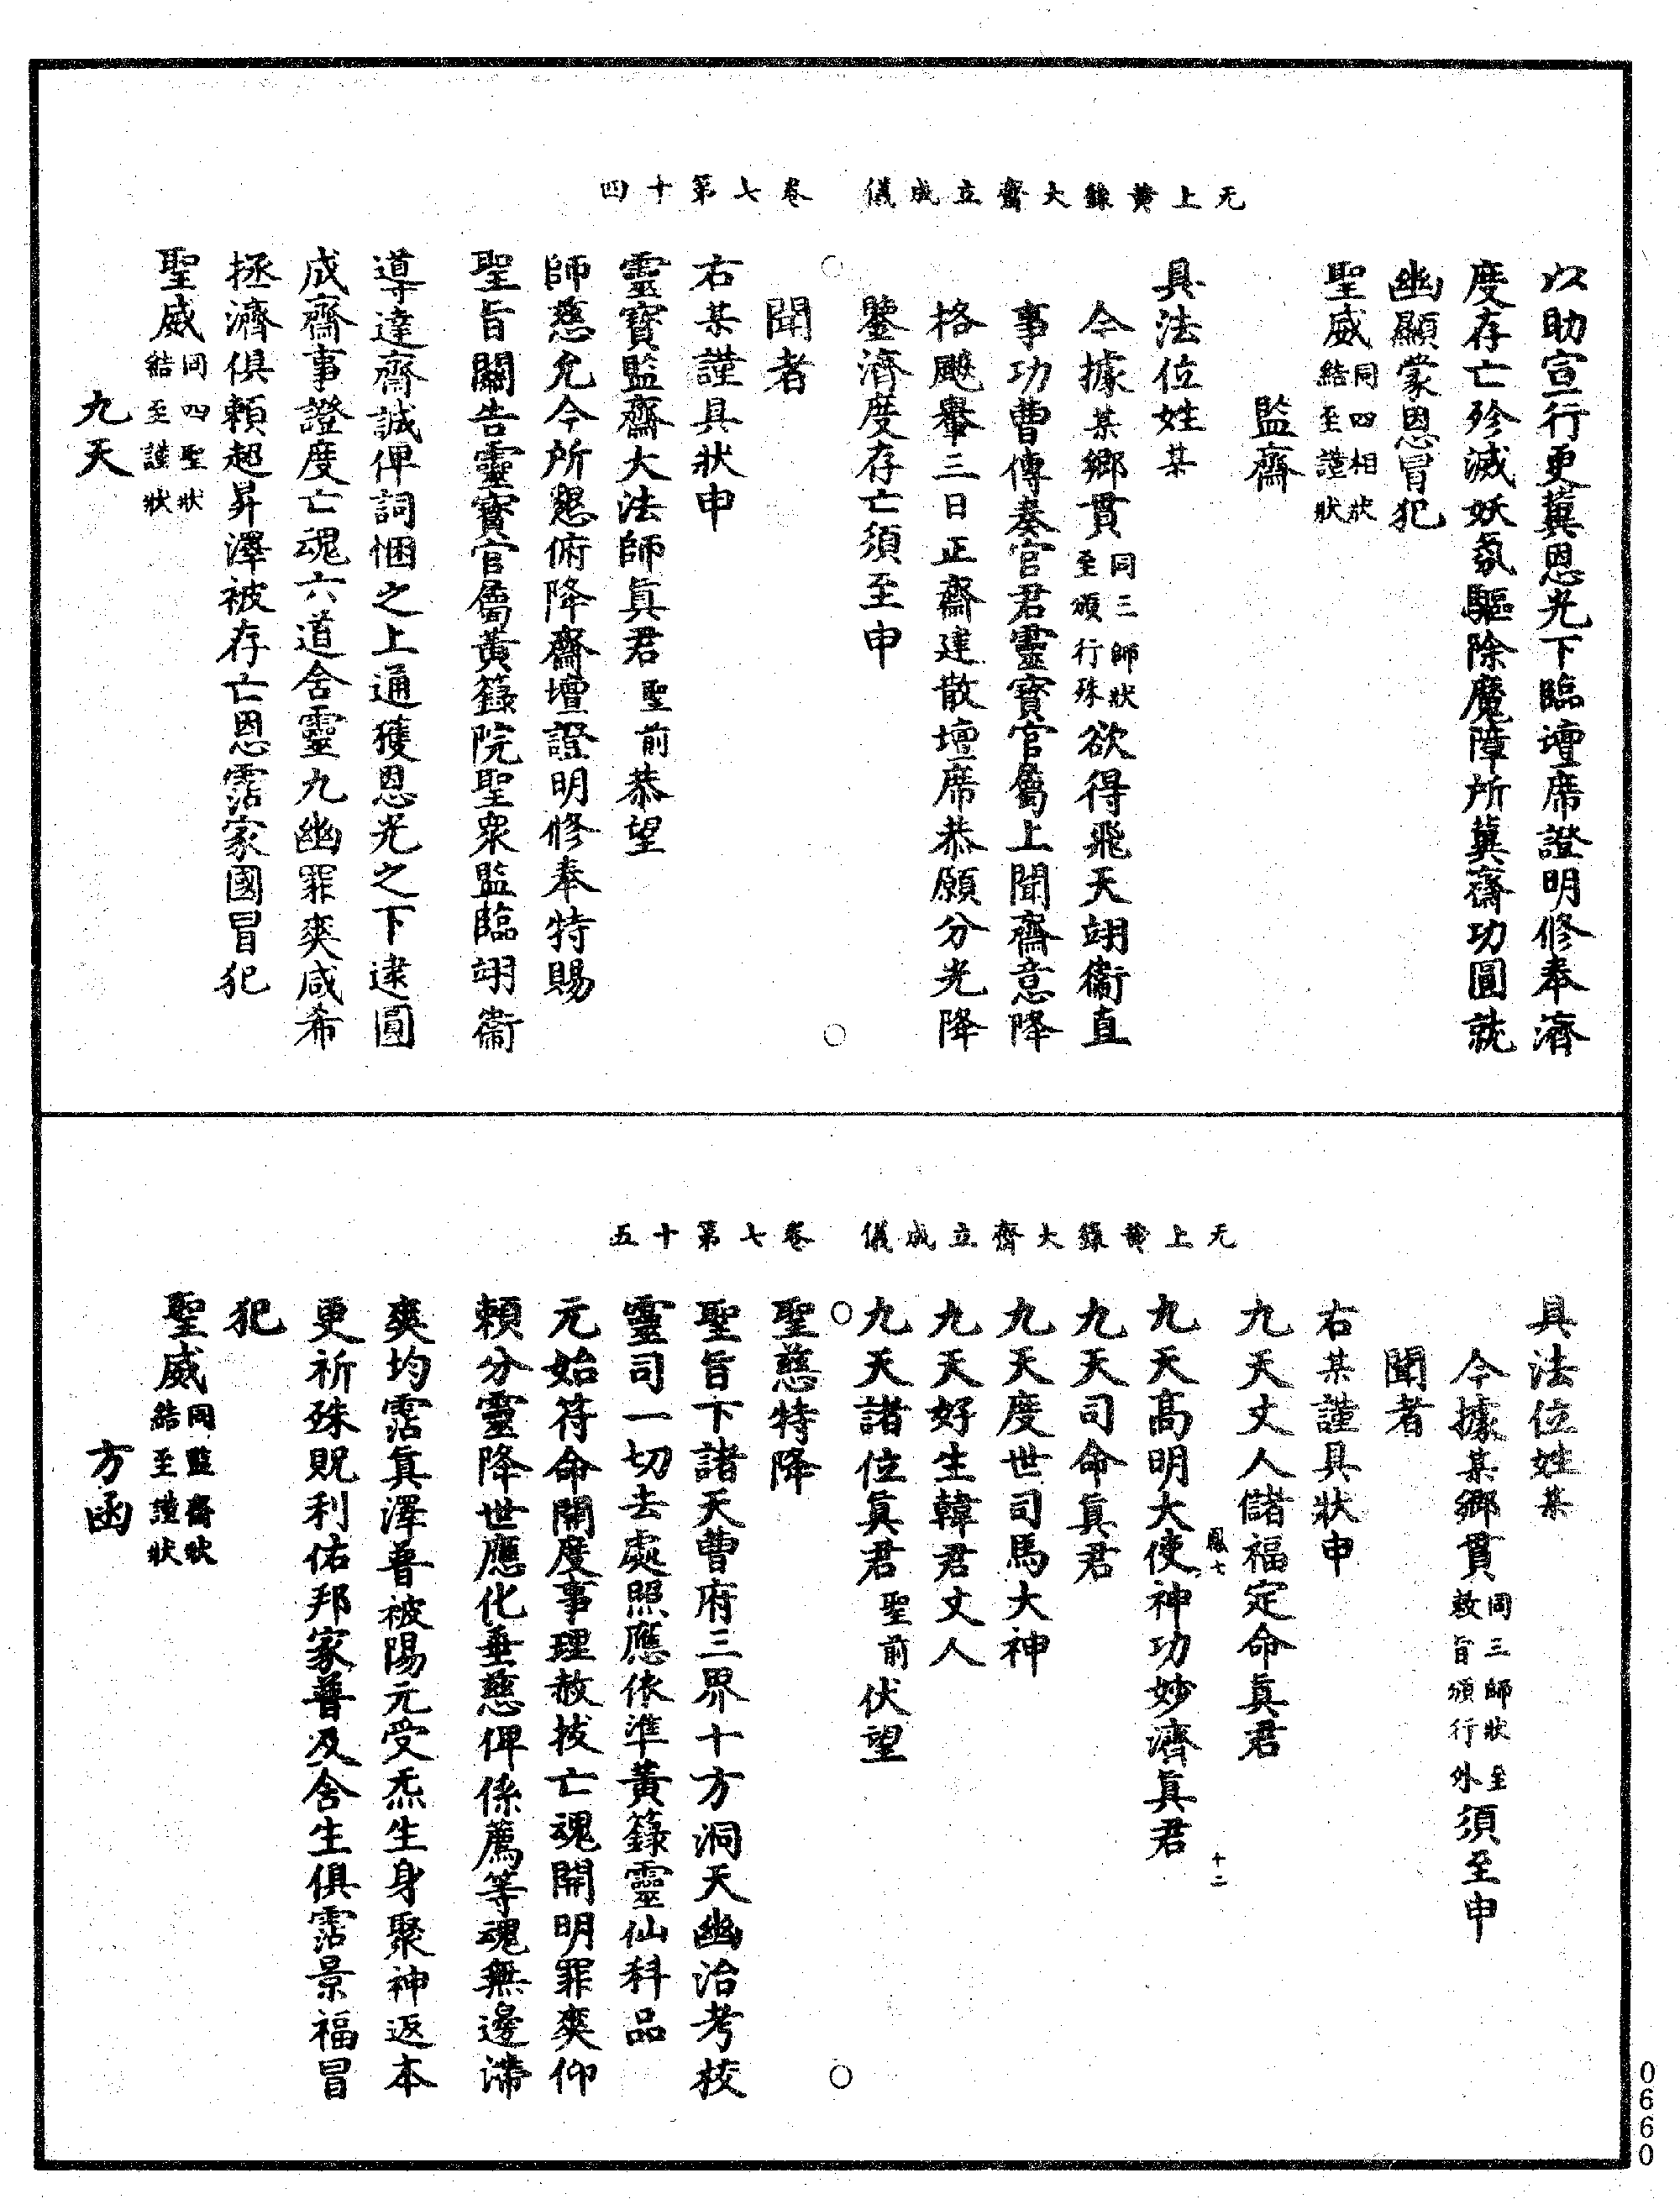 无上黃籙大齋立成儀　卷七第十四
以助宣行更冀恩光下臨壇席證明修奉濟
度存亡殄滅妖氛驅除魔障所冀齋功圓就
幽顯蒙恩冒犯
聖威同四相狀結至謹狀
監齋
具法位姓某
今據某鄉貫同三師狀至頒行殊欲得飛天翊衞直
事功曹傳奏官君靈寶官屬上聞齋意降
格飈轝三日正齋建散壇席恭願分光降
鑒濟度存亡須至申
聞者
右某謹具狀申
靈寶監齋大法師眞君聖前恭望
師慈允今所懇俯降齋壇證明修奉特賜
聖旨關告靈寶官屬黃籙院聖衆監臨翊衞
導達齋誠俾詞悃之上通獲恩光之下逮圓
成齋事證度亡魂六道含靈九幽罪爽咸希
拯濟俱賴超昇澤被存亡恩霑家國冒犯
聖威同四聖狀結至謹狀
九天
无上黃籙大齋立成儀　卷七第十五
具法位姓某
今據某鄉貫同三師狀至敕旨頒行外須至申
聞者
右某謹具狀申
九天丈人儲福定命眞君
鳳七　十二
九天高明大使神功妙濟眞君
九天司命眞君
九天度世司馬大神
九天好生韓君丈人
九天諸位眞君聖前伏望
聖慈特降
聖旨下諸天曹府三界十方洞天幽治考校
靈司一切去處照應依準黃籙靈仙科品
元始符命開度事理赦拔亡魂開明罪爽仰
賴分靈降世應化垂慈俾係薦等魂無邊滯
爽均霑眞澤普被陽元受炁生身聚神返本
更祈殊貺利佑邦家普及含生俱霑景福冒
犯
聖威同監齋狀結至謹狀
方函
0660